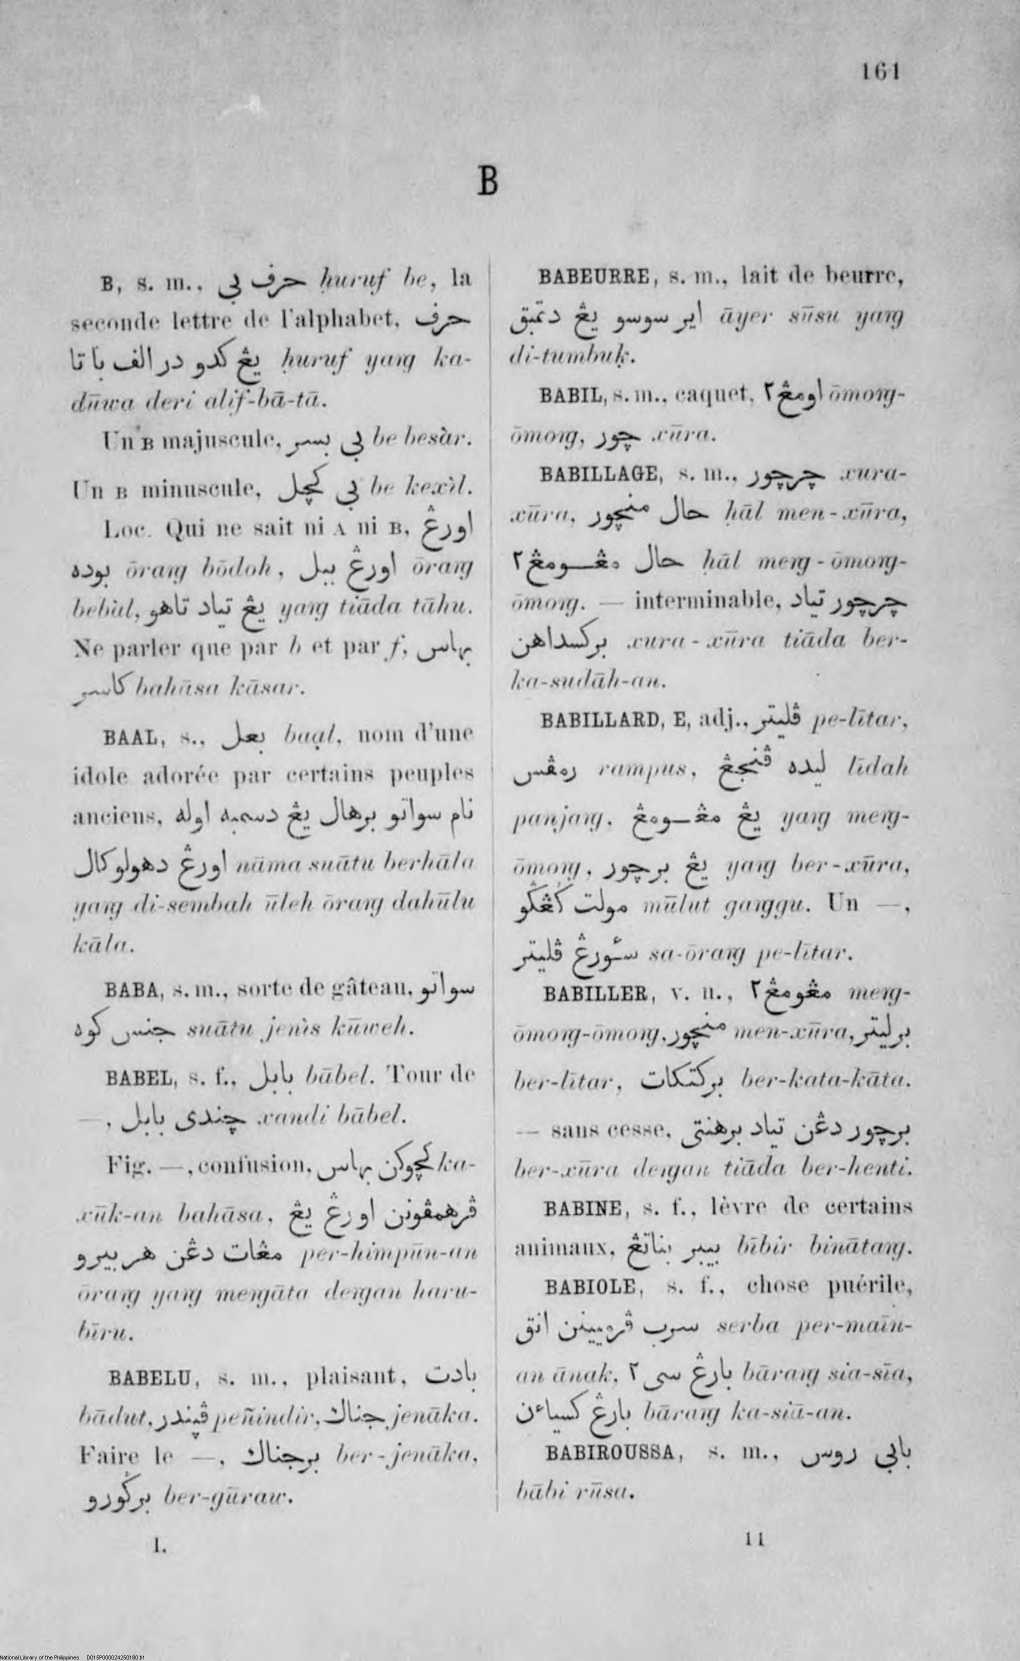 161
B
B, s. m., حرف بي ḥuruf be, la
seconde lettre de l'alphabet, حرف
يڠ كدو در الف با تا ḥuruf yaṃg ka-
dūwa deri alif-bā-tā.
Un B majuscule, بي بسر be besàr.
Un B minuscule, بي كچل be kexìl.
Loc. Qui ne sait ni A ni B, اورڠ
بوده ōraṃg bōdoh, اورڠ ببل ōraṃg
bebùl, يڠ تياد تاهو yaṃg tiāda tāhu.
Ne parler que par b et par f, بهاس
كاسر bahāsa kāsar.
BAAL, s., بعل baạl, nom d'une
idole adorée par certains peuples
anciens, نام سواتو برهال يڠ دسمبه اوله
اورڠ دهولوكال nāma suātu berhāla
yaṃg di-sembah ūleh ōraṃg dahūlu
kāla.
BABA, s. m., sorte de gâteau, سواتو
جنس كوه suātu jenìs kūweh.
BABEL, s. f., بابل bābel. Tour de
—, چندي بابل xandi bābel.
Fig. —, confusion, كچوكن بهاس ka-
xūk-an bahāsa, ڤرهمڤونن اورڠ يڠ
مڠات دڠن هر بيرو per-himpūn-an
ōraṃg yaṃg meṃgāta deṃgan haru-
bīru.
BABELU, s. m., plaisant, بادت
bādut, ڤيندر peñindir, جناك jenāka.
Faire le —, برجناك ber-jenāka,
برݢورو ber-gūraw.
I.
BABEURRE, s. m., lait de beurre,
اير سوسو يڠ دتمبق āyer sūsu yaṃg
di-tumbuḳ.
BABIL, s. m., caquet, اومڠ٢ ōmoṃg-
ōmoṃg, چور xūra.
BABILLAGE, s. m., چرچور xura-
xūra, حال منچور ḥāl men-xūra,
حال مڠومڠ٢ ḥāl meṃg-ōmoṃg-
ōmoṃg. — interminable, چرچور تياد
بركسداهن xura-xūra tiāda ber-
ka-sudāh-an.
BABILLARD, E, adj., ڤليتر pe-lītar,
رمڤس rampus, ليده ڤنجڠ līdah
panjaṃg, يڠ مڠومڠ yaṃg meṃg-
ōmoṃg, يڠ برچور yaṃg ber-xūra,
مولت ݢڠݢو mūlut gaṃggu. Un —,
سئورڠ ڤليتر sa-ōraṃg pe-lītar.
BABILLER, v. n., مڠومڠ٢ meṃg-
ōmoṃg-ōmoṃg, منچور men-xūra, برليتر
ber-lītar, بركتكات ber-kata-kāta.
— sans cesse, برچور دڠن تياد برهنتي
ber-xūra deṃgan tiāda ber-henti.
BABINE, s. f., lèvre de certains
animaux, بيبر بناتڠ bībir binātaṃg.
BABIOLE, s. f., chose puérile,
سرب ڤرميينن انق serba per-maīn-
an ānak, بارڠ سي٢ bāraṃg sia-sīa,
بارڠ كسياءن bāraṃg ka-siā-an.
BABIROUSSA, s. m., بابي روس
bābi rūsa.
11
National Library of the Philippines